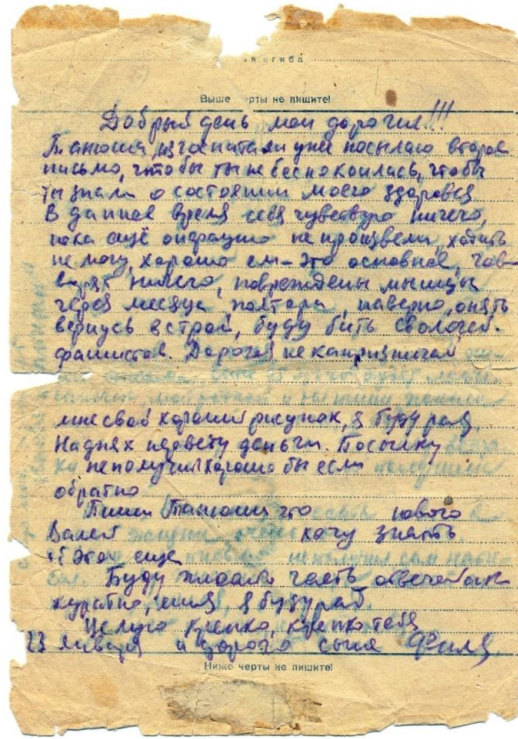 сгиба
Выше черты не пишите!
Добрый день мои дорогие!!!
Танюша, из госпиталя уже посылаю второе
письмо, чтобы ты не беспокоилась, чтобы
ты знала о состоянии моего здоровья
В данное время себя чувствую ничего,
пока ещё операцию не произвели, ходить
не могу, хорошо ем – это основное, гов-
ничего, повреждены мышцы
через месяца полтора, наверно, опять
вернусь в строй, буду бить сволочей-
фашистов. Дорогая не капризничай
мне свой хороший рисунок, я буду рад,
На днях переведу деньги. Посылку
не получил хорошо бы если
обратно
Пиши Танюши что нового
хочу знать
Буду
я буду рад.
Целую крепко, крепко тебя
23 января и дорогого сына Филя
Ниже черты не пишите!